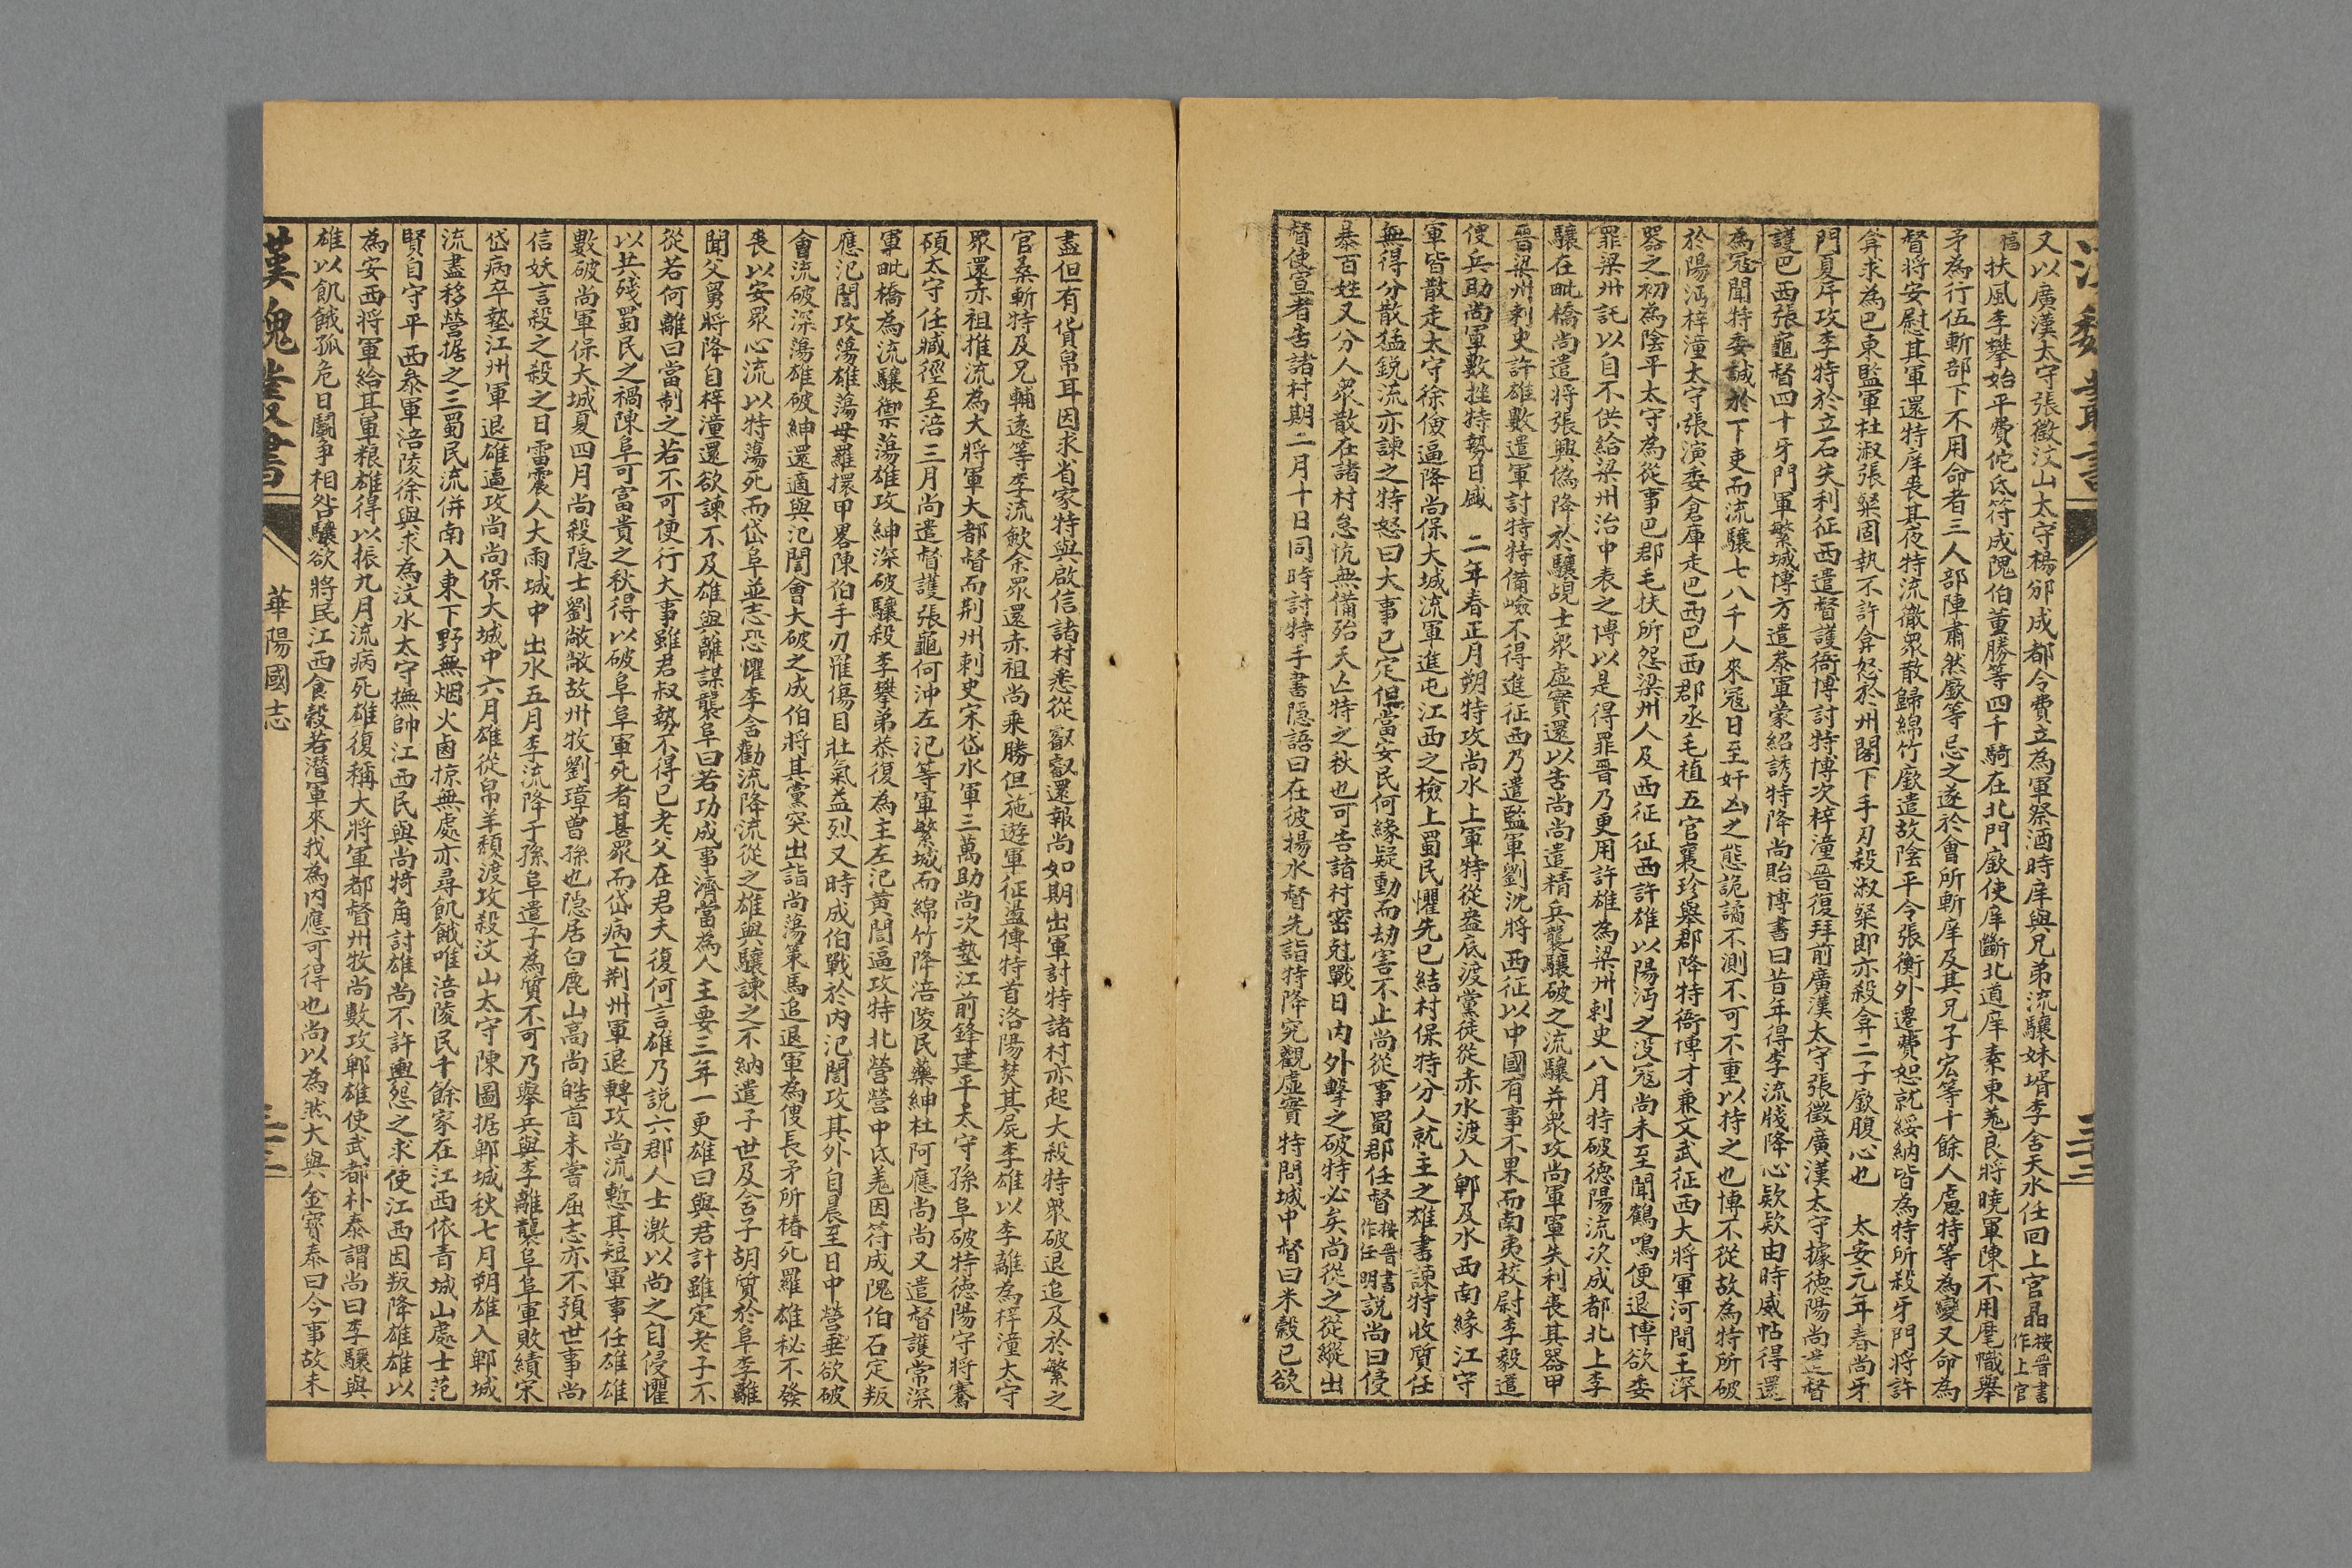 又以廣漢太守張徵汶山太守楊邠成都令費立為軍祭酒時庠與兄弟流驤妹壻李含天水任回上官晶按晉書作上官
惇扶風李攀始平費佗氐符成隗伯董勝等四千騎在北門廞使庠斷北道庠素東羌良將曉軍陳不用麾幟舉
矛為行伍斬部下不用命者三人部陣肅然廞等忌之遂於會所斬庠及其兄子宏等十餘人慮特等為變又命為
督將安慰其軍還特庠喪其夜特流徹衆散歸綿竹廞遣故陰平令張衡外遷費恕就綏納皆為特所殺牙門將許
弇求為巴東監軍杜淑張粲固執不許弇怒於州閤下手刃殺淑粲即亦殺弇二子廞腹心也 太安元年春尚牙
門夏斥攻李特於立石失利征西遣督護衙博討特博次梓潼晉復拜前廣漢太守張徵廣漢太守據德陽尚遣督
護巴西張龜督四十牙門軍繁城博方遣叅軍蒙紹誘特降尚貽博書曰昔年得李流牋降心欵欵由時威帖得還
為寇聞特委誠於下吏而流驤七八千人來寇日至奸凶之態詭譎不測不可不重以持之也博不從故為特所破
於陽沔梓潼太守張演委倉庫走巴西巴西郡丞毛植五官襄珍舉郡降特衙博才兼文武征西大將軍河間王深
器之初為陰平太守為從事巴郡毛扶所怨梁州人及西征征西許雄以陽沔之沒寇尚未至聞鶴鳴便退博欲委
罪梁州託以自不供給梁州治中表之博以是得罪晉乃更用許雄為梁州刺史八月特破德陽流次成都北上李
驤在毗橋尚遣將張興偽降於驤覘士衆虛實還以告尚尚遣精兵襲驤破之流驤并衆攻尚軍軍失利喪其器甲
晉梁州刺史許雄數遣軍討特特備嶮不得進征西乃遣監軍劉沈將西征以中國有事不果而南夷校尉李毅遣
傁兵助尚軍數挫特勢日盛 二年春正月朔特攻尚水上軍特從盎底渡黨徒從赤水渡入郫及水西南緣江守
軍皆散走太守徐儉逼降尚保大城流軍進屯江西之檢上蜀民懼先已結村保特分人就主之雄書諫特收質任
無得分散猛鋭流亦諫之特怒曰大事已定但當安民何緣疑動而劫害不止尚從事蜀郡任督按晉書作任明説尚曰侵
暴百姓又分人衆散在諸村怠忼無備殆天亾特之秋也可告諸村密尅戰日內外擊之破特必矣尚從之從縋出
督使宣者告諸村期二月十日同時討特手書隱語曰在彼揚水督先詣特降究觀虛實特問城中督曰米穀已欲
盡但有貨帛耳因求省家特與啟信諸村悉從叡叡還報尚如期出軍討特諸村亦起大殺特衆破退追及於繁之
官桑斬特及兄輔遠等李流歛余衆還赤祖尚乘勝但施遊軍征盪傳特首洛陽焚其屍李雄以李離為梓潼太守
眾還赤祖推流為大將軍大都督而荆州刺史宋岱水軍三萬助尚次墊江前鋒建平太守孫阜破特德陽守將騫
碩太守任臧徑至涪三月尚遣督護張龜何沖左汜等軍繁城而綿竹降涪陵民藥紳杜阿應尚尚又遣督護常深
軍毗橋為流驤禦蕩雄攻紳深破驤殺李攀弟恭復為主左汜黃誾逼攻特北營營中氐羌因符成隗伯石定叛
應汜誾攻蕩雄蕩母羅擐甲畧陳伯手刃羅傷目壯氣益烈又時成伯戰於內汜誾攻其外自晨至日中營垂欲破
會流破深蕩雄破紳還適與汜誾會大破之成伯將其黨突出詣尚蕩策馬追退軍為傁長矛所樁死羅雄秘不發
喪以安衆心流以特蕩死而岱阜並志恐懼李含勸流降流從之雄與驤諫之不納遣子世及含子胡質於阜李離
聞父舅將降自梓潼還欲諫不及雄與離謀襲阜曰若功成事濟當為人主要三年一更雄曰與君計雖定老子不
從若何離曰當制之若不可便行大事雖君叔勢不得已老父在君夫復何言雄乃説六郡人士激以尚之自侵懼
以共殘蜀民之禍陳阜可富貴之秋得以破阜阜軍死者甚衆而岱病亡荆州軍退轉攻尚流慙其短軍事任雄雄
數破尚軍保大城夏四月尚殺隱士劉敞敞故州牧劉璋曾孫也隱居白鹿山高尚皓首未嘗屈志亦不預世事尚
信妖言殺之殺之日雷震人大雨城中出水五月李流降于孫阜遣子為質不可乃舉兵與李離襲阜阜軍敗績宋
岱病卒墊江州軍退雄逼攻尚尚保大城中六月雄從帛羊頹渡攻殺汶山太守陳圖据郫城秋七月朔雄入郫城
流盡移營据之三蜀民流併南入東下野無烟火鹵掠無處亦尋飢餓唯涪陵民千餘家在江西依青城山處士范
賢自守平西叅軍涪陵徐與求為汶水太守撫帥江西民與尚犄角討雄尚不許輿怨之求使江西因叛降雄雄以
為安西將軍給其軍粮雄得以振九月流病死雄復稱大將軍都督州牧尚數攻郫雄使武都朴泰謂尚曰李驤與
雄以飢餓孤危日鬬爭相咎驤欲將民江西食穀若潛軍來我為內應可得也尚以為然大與金寶泰曰今事故未
漢魏叢書 華陽國志